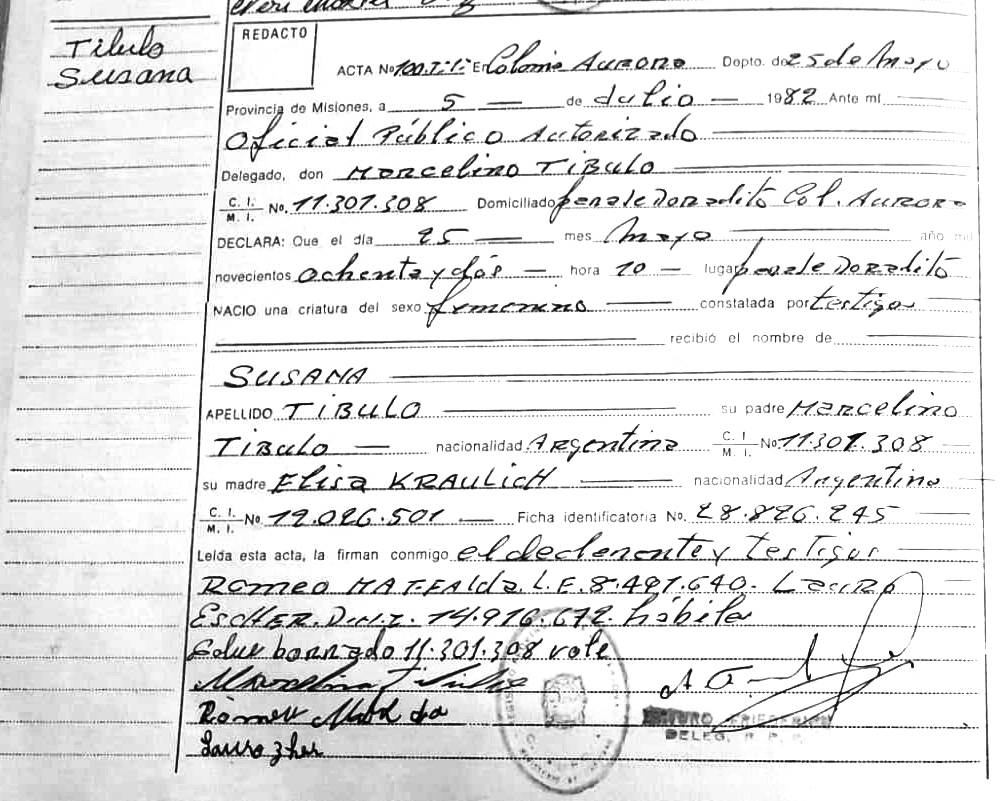 Tibulo
Susana
REDACTO
ACTA No 100.T.I. En Colonia Aurora Depto. de 25 de Mayo
Provincia de Misiones, a 5 de Julio 1982 Ante mí
Oficial Público Autorizado
Delegado, don Marcelino TIBULO
C. I. M. I. No. 11.301.308 Domiciliado Doradito Col. AURORA
DECLARA: Que el día 25 mes Mayo año mil
novecientos ochenta y dós hora 10 lugar Doraditó
NACIO una criatura del sexo femenino constatada por testigos
recibió el nombre de
SUSANA
APELLIDO TIBULO su padre Marcelino
TIBULO nacionalidad Argentina C. I. M. I. No 11.301.308
su madre Elisa KRAULICH nacionalidad Argentina
C. I. M. I. No 12.026.501 Ficha identificatoria No. 28.826.245
Leída esta acta, la firman conmigo el declarante y testigos
Romeo MATFALda. L.E. 8.491.640. Lauro
EscHER. D.N.I. 14.916.672. hábiles
borrado 11.301.308 vale
Marcelino
Romeo
Lauro
ARTURO FRIEDERICH
DELEG. R. P. P.